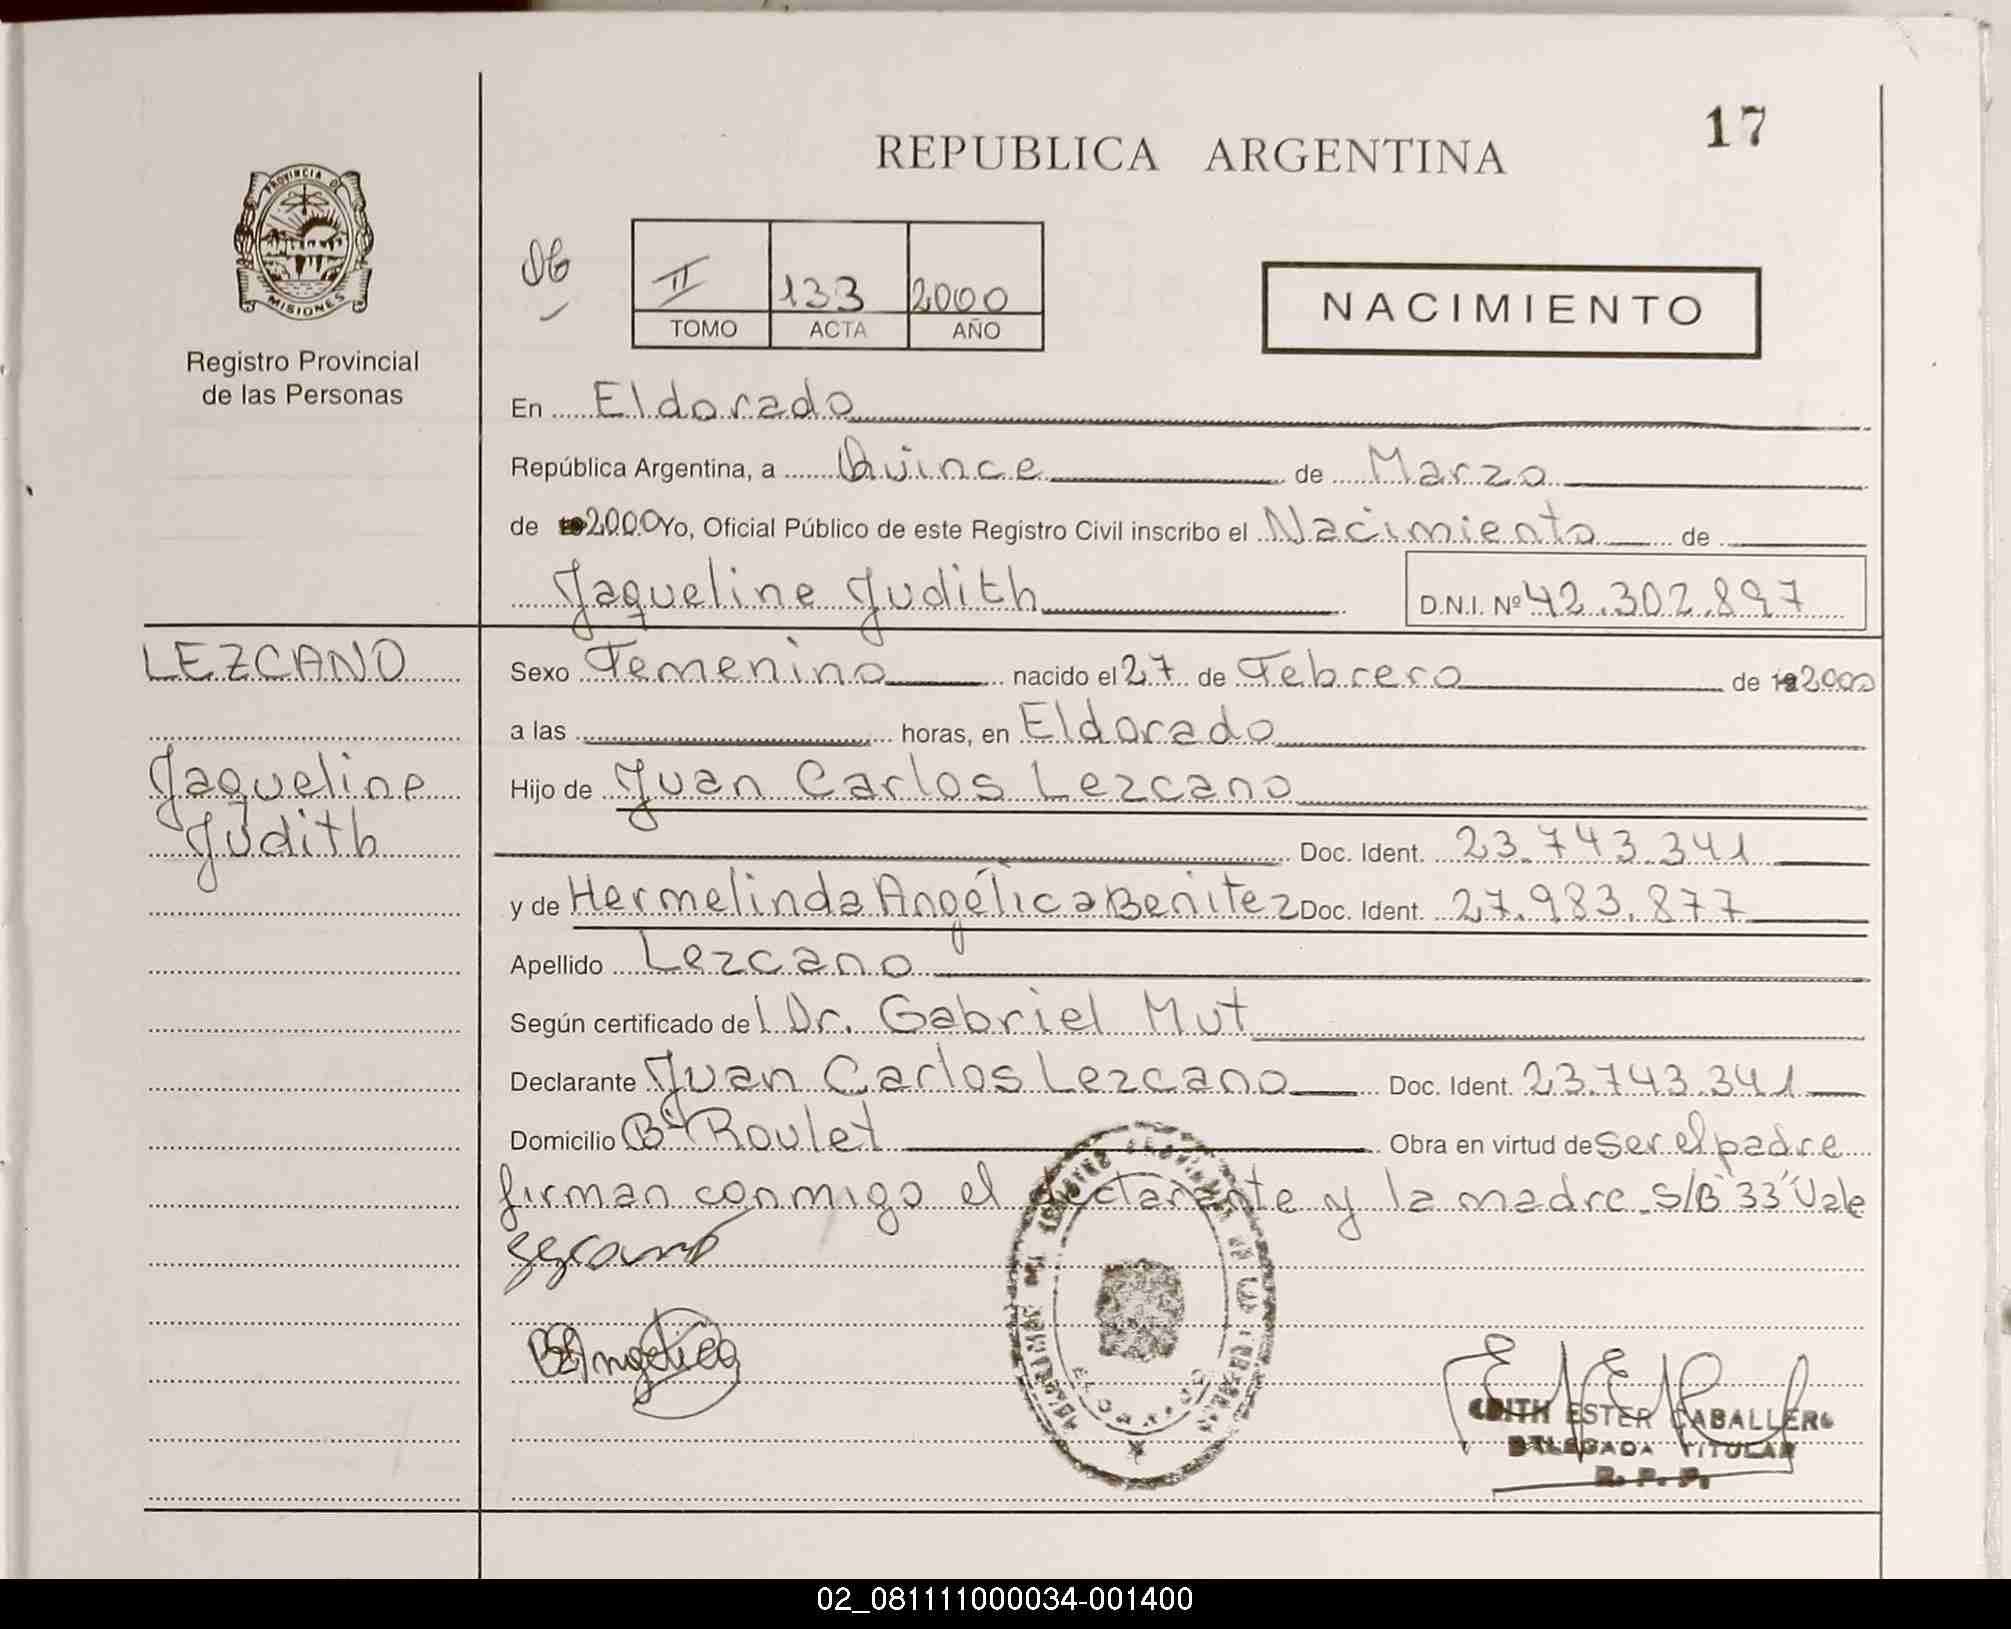 17
REPUBLICA ARGENTINA
PROVINCIA D
MISIONES
Registro Provincial
de las Personas
II 133 2000
TOMO ACTA AÑO
NACIMIENTO
En Eldorado
República Argentina, a Quince de Marzo
de 2000 Yo, Oficial Público de este Registro Civil inscribo el Nacimiento de
Jaqueline Judith D.N.I. Nº 42.302.897
LEZCANO
Jaqueline
Judith
Sexo Femenino nacido el 27 de Febrero de 192000
a las horas, en Eldorado
Hijo de Juan Carlos Lezcano
Doc. Ident. 23.743.341
y de Hermelinda Angélica Benitez Doc. Ident. 27.983.877
Apellido Lezcano
Según certificado del Dr. Gabriel Mut
Declarante Juan Carlos Lezcano Doc. Ident. 23.743.341
Domicilio Bº Roulet Obra en virtud de ser el padre
firman conmigo el declarante y la madre. S/B "33" Vale
B Angelica
ELDORADO
EDITH ESTER CABALLERO
DELEGADA TITULAR
R. P. P.
02_081111000034-001400